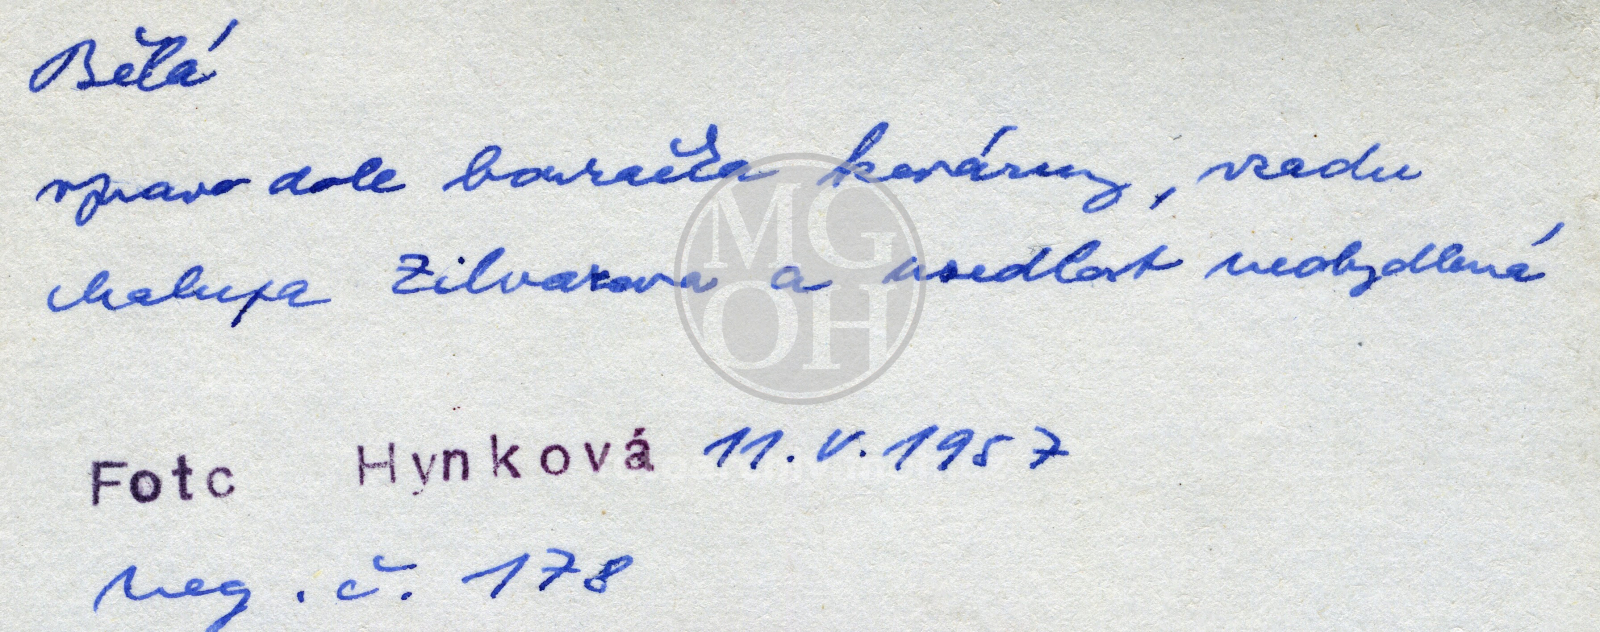 Bělá
vpravo dole bouračka kovárny, vzadu
chalupa Zilvarova a usedlost neobydlená
MG
OH
Foto Hynková 11.V.1957
neg. č. 178